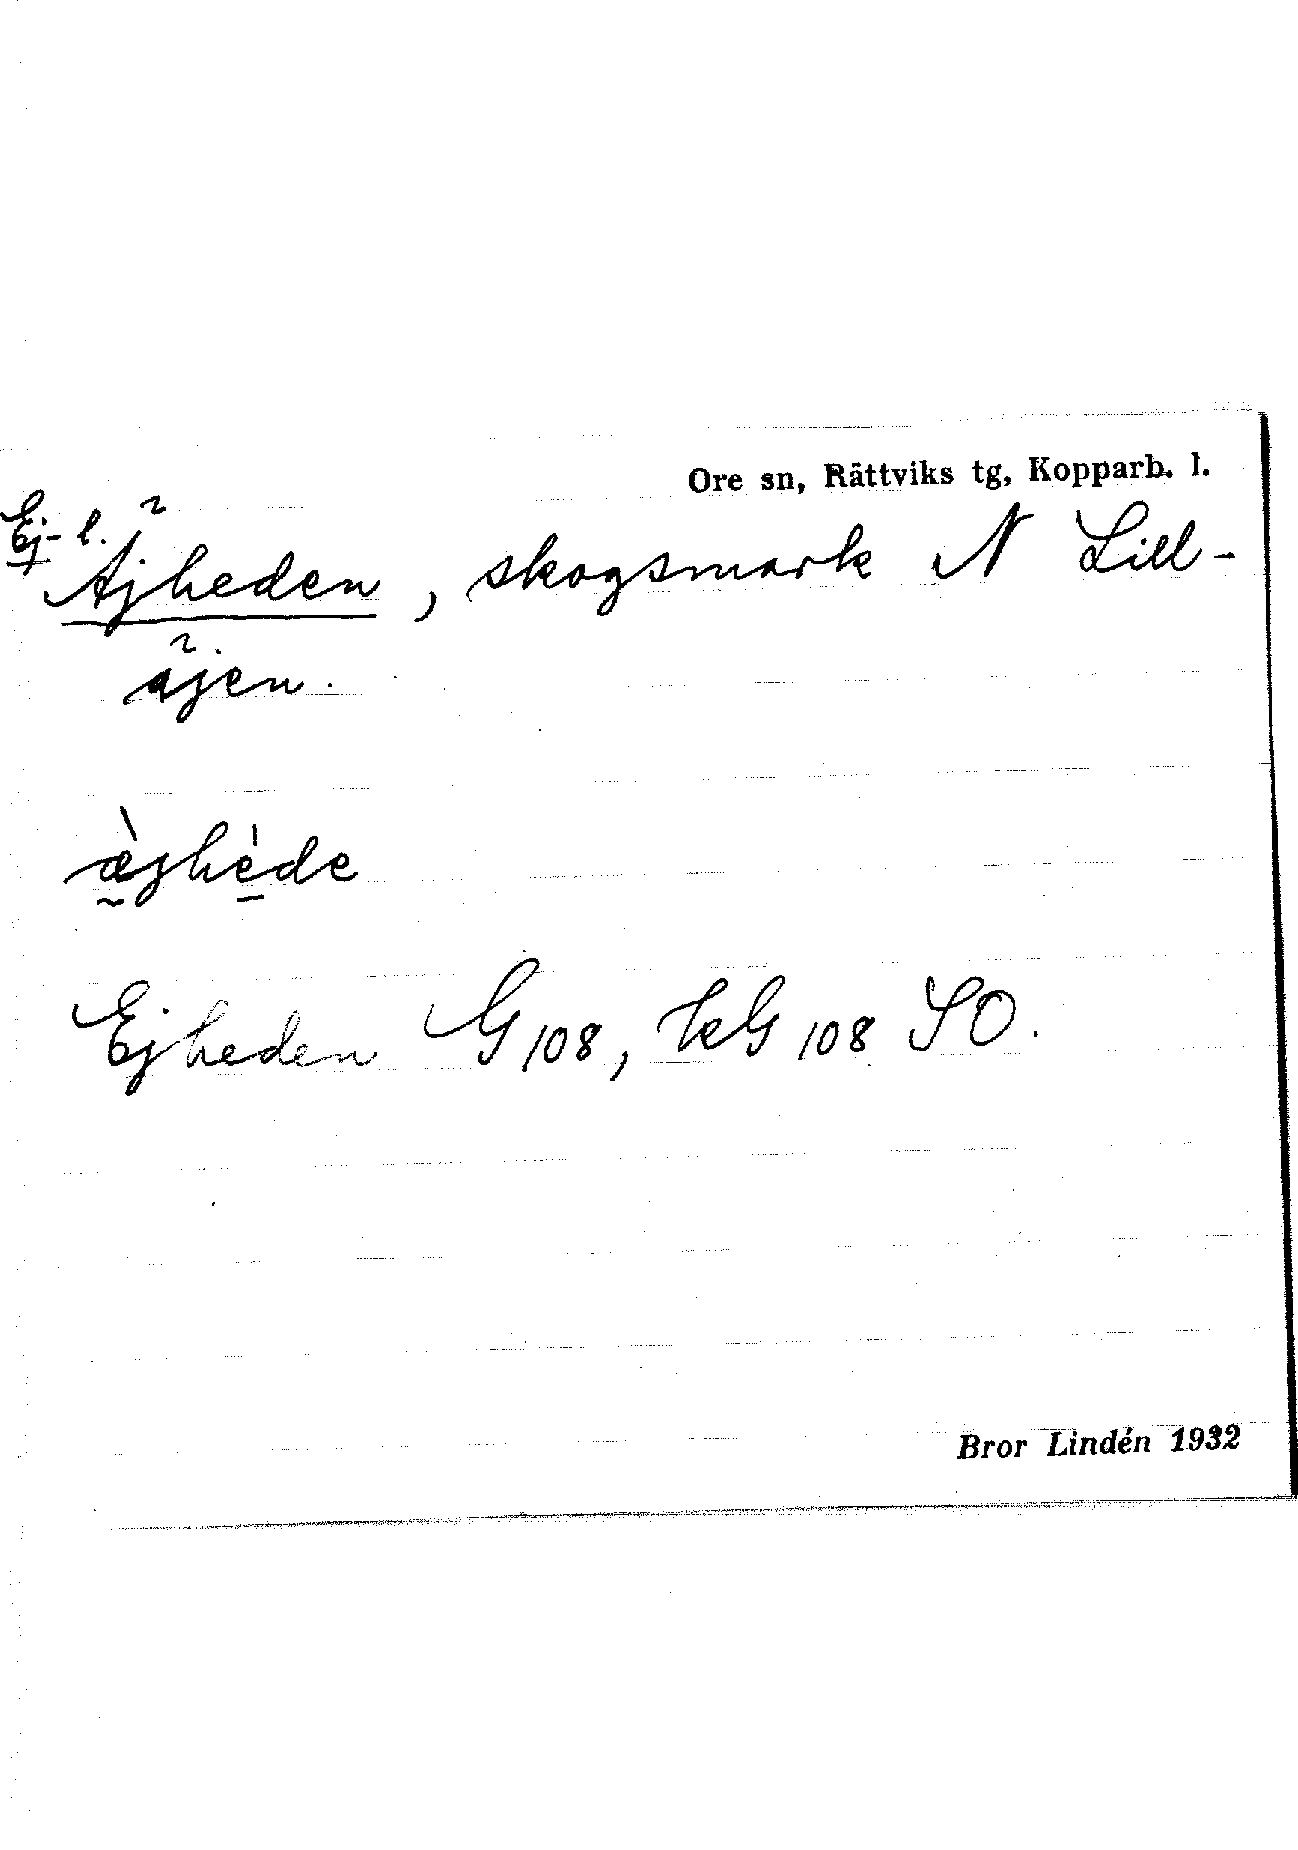 Ore sn, Rättviks tg, Kopparb. l.
Ej- l.
Äjheden, skogsmark N Lill-
äjen.
æ̀jhède
Ejheden G 108, kG 108 SO.
Bror Lindén 1932